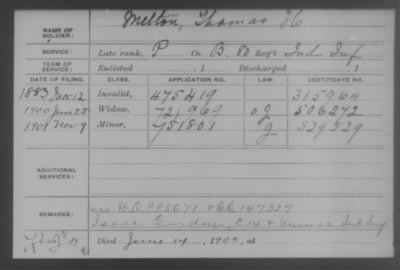 NAME OF SOLDIER: Melton, Thomas H
SERVICE: Late rank, P Co. B, 80 Reg't Ind Inf
TERM OF SERVICE: Enlisted , 1 Discharged , 1
DATE OF FILING. CLASS. APPLICATION NO. LAW. CERTIFICATE NO.
1883 Invalid, 475419 315964
1900 June 25 Widow, 721969 506272
1901 Nov 9 Minor, 751801 529529
ADDITIONAL SERVICES:
REMARKS: W.O. 995671 & C.C. 147327
Isaac Gardner, C 14 & Ind Inf
Died June 14, 1900, at